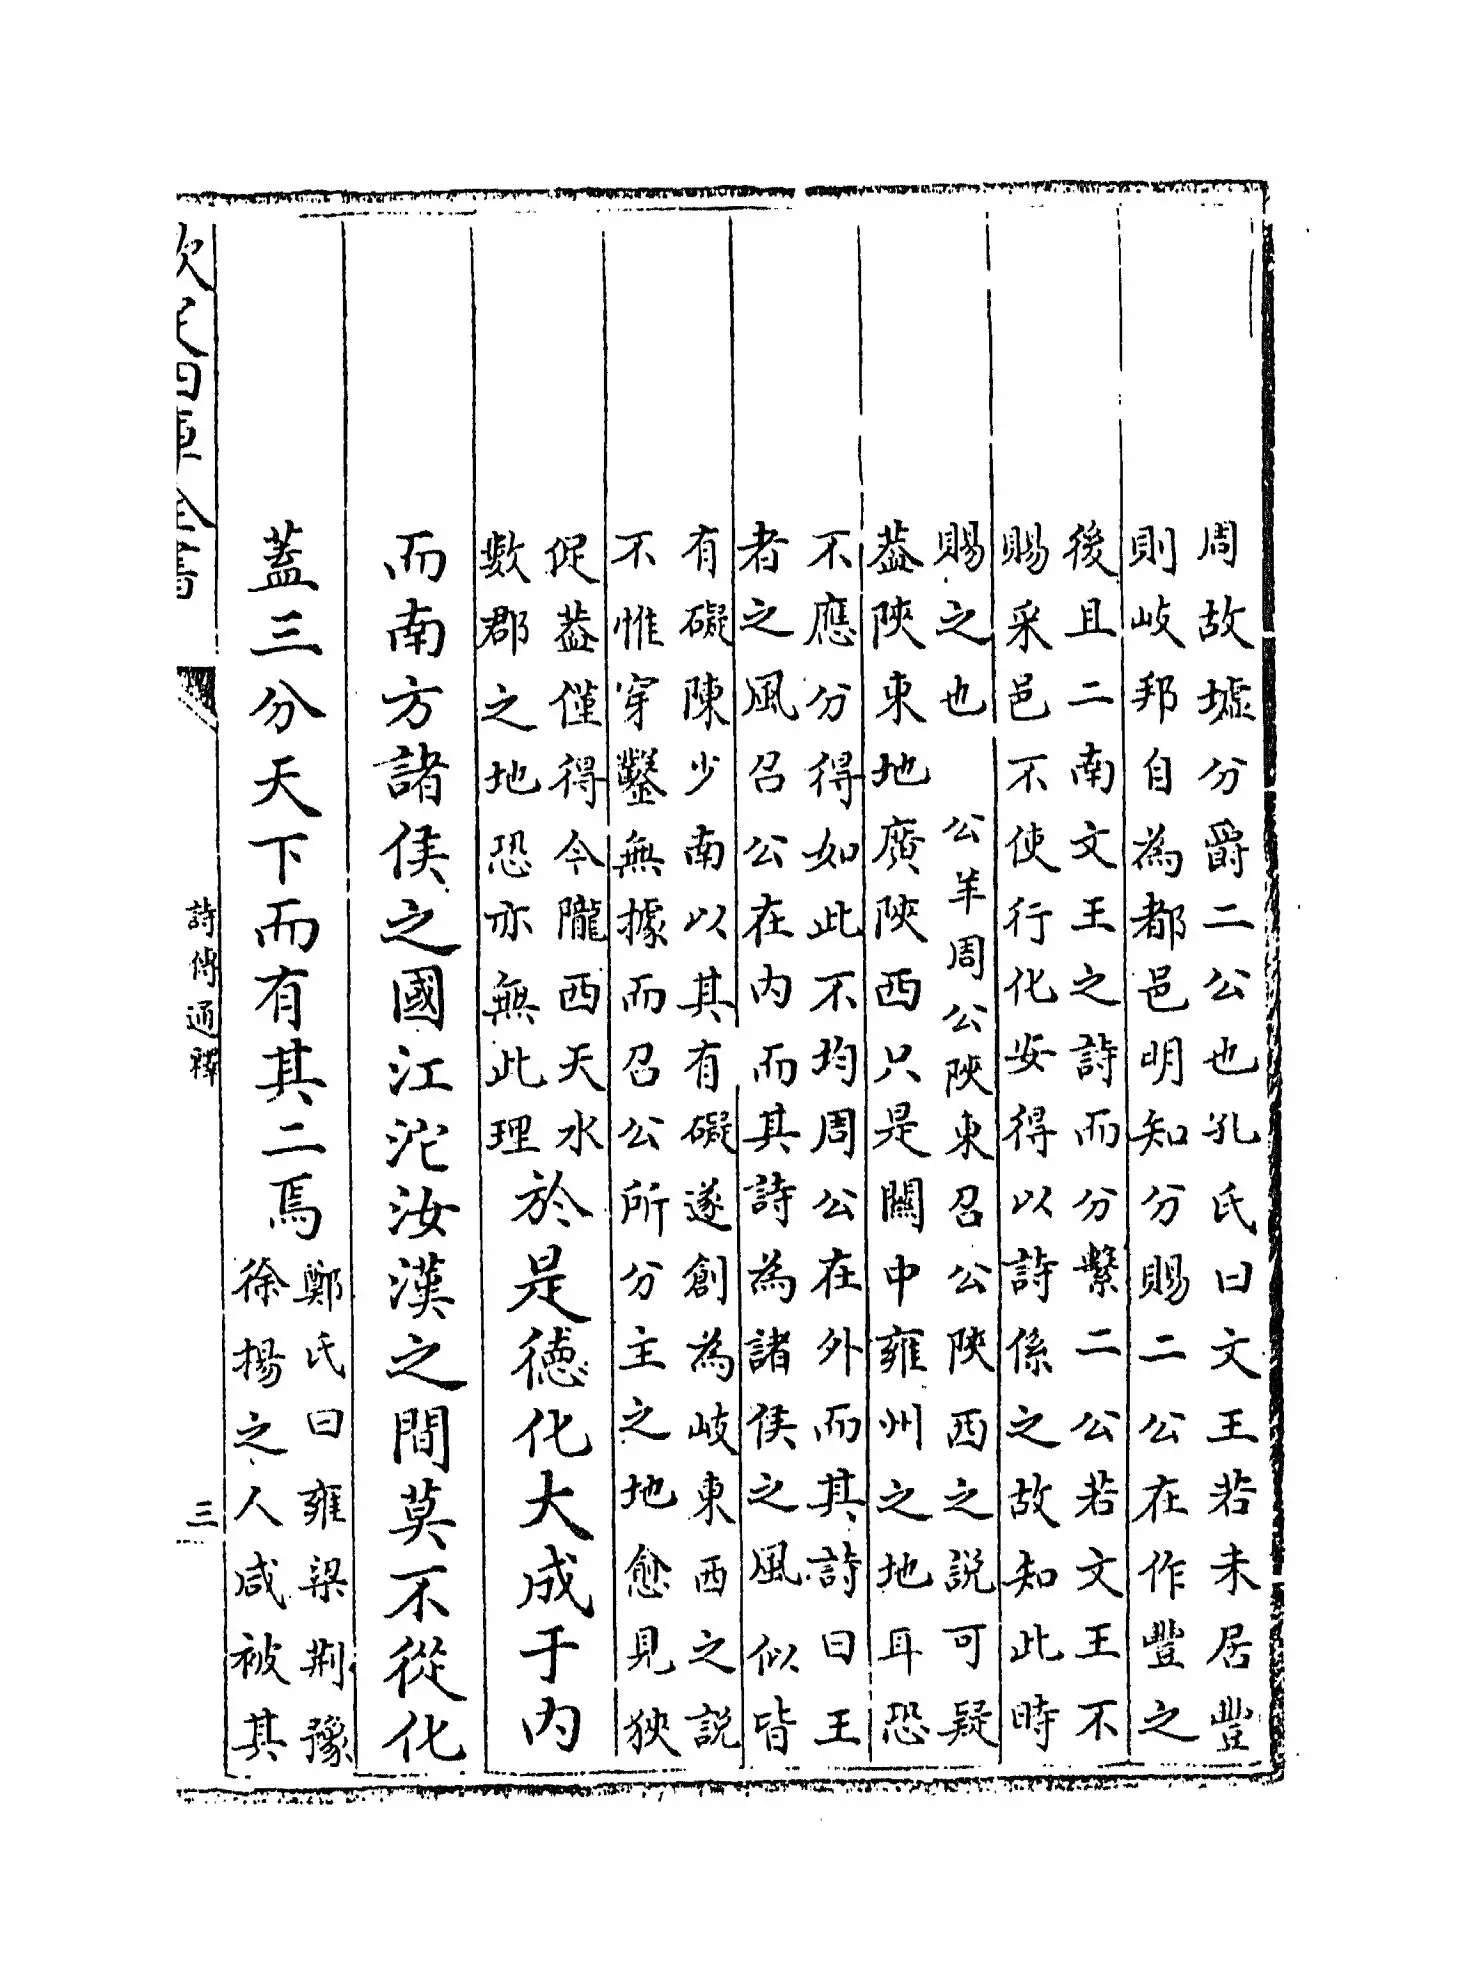 周故墟分爵二公也孔氏曰文王若未居豐
則岐邦自為都邑明知分賜二公在作豐之
後且二南文王之詩而分繫二公若文王不
賜采邑不使行化安得以詩係之故知此時
賜之也 公羊周公陜東召公陜西之説可疑
葢陜東地廣陜西只是關中雍州之地耳恐
不應分得如此不均周公在外而其詩曰王
者之風召公在内而其詩為諸侯之風似皆
有礙陳少南以其有礙遂創為岐東西之説
不惟穿鑿無據而召公所分主之地愈見狹
促葢僅得今隴西天水
數郡之地恐亦無此理
於是德化大成于内
而南方諸侯之國江沱汝漢之間莫不從化
蓋三分天下而有其二焉
鄭氏曰雍梁荆豫
徐揚之人咸被其
欽定四庫全書
詩傳通釋
三